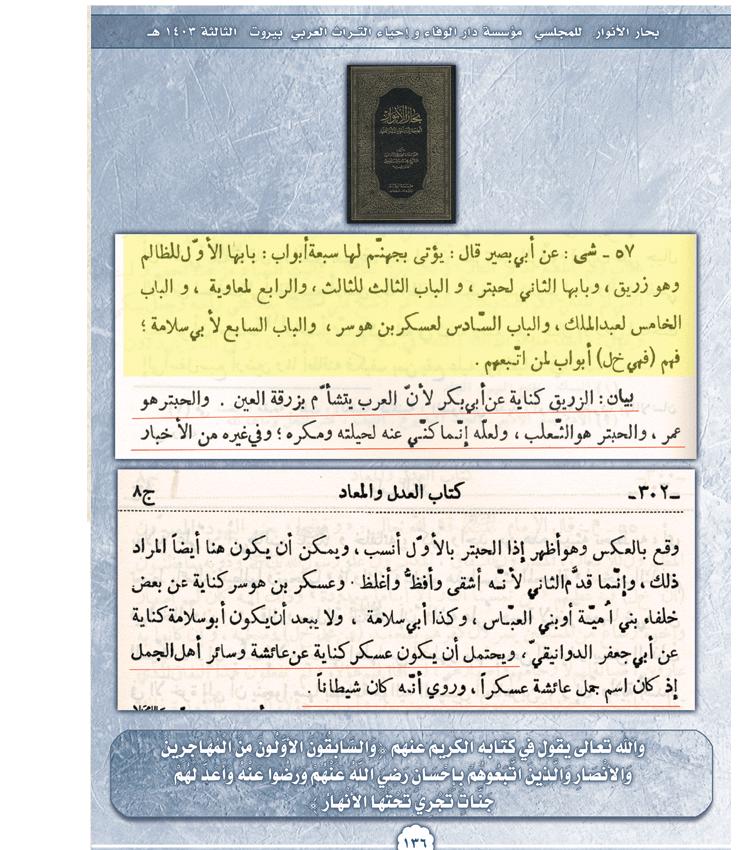 بحار الأنوار للمجلسي مؤسسة دار الوفاء و إحياء التراث العربي بيروت الثالثة ١٤٠٣ هـ
بحار الأنوار
٥٧ ـ شى : عن أبي بصير قال : يؤتى بجهنّم لها سبعة أبواب : بابها الأوّل للظالم
وهو زريق ، وبابها الثاني لحبتر ، و الباب الثالث للثالث ، والرابع لمعاوية ، و الباب
الخامس لعبدالملك ، والباب السّادس لعسكر بن هوسر ، والباب السابع لأبي سلامة ؛
فهم (فهي خ ل) أبواب لمن اتّبعهم .
بيان : الزريق كناية عن أبي بكر لأنّ العرب يتشأّم بزرقة العين . والحبتر هو
عمر ، والحبتر هو الثعلب ، ولعلّه إنّما كنّي عنه لحيلته ومكره ؛ وفي غيره من الأخبار
ـ٣٠٢ـ كتاب العدل والمعاد ج٨
وقع بالعكس وهو أظهر إذا الحبتر بالأوّل أنسب ، ويمكن أن يكون هنا أيضاً المراد
ذلك ، وإنّما قدّم الثاني لأنّه أشقى وأفظّ وأغلظ . وعسكر بن هوسر كناية عن بعض
خلفاء بني اُميّة أو بني العبّاس ، وكذا أبي سلامة ، ولا يبعد أن يكون أبو سلامة كناية
عن أبي جعفر الدوانيقيّ ، ويحتمل أن يكون عسكر كناية عن عائشة وسائر أهل الجمل
إذ كان اسم جمل عائشة عسكراً ، وروي أنّه كان شيطاناً .
والله تعالى يقول في كتابه الكريم عنهم * والسَّابقُون الأوَّلُون من المُهاجرين
والأنْصار والَّذين اتَّبعُوهُمْ بإحسان رضي اللَّهُ عنْهُم ورضُوا عنْه وأعدَّ لهُم
جنَّات تجْري تحْتها الأنْهار *
١٣٦